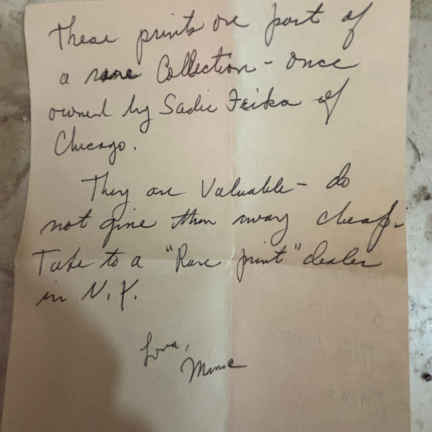 These prints are part of
a rare Collection - once
owned by Sadie Feika of
Chicago.
They are Valuable - do
not give them away cheap -
Take to a "Rare print" dealer
in N.Y.
Love,